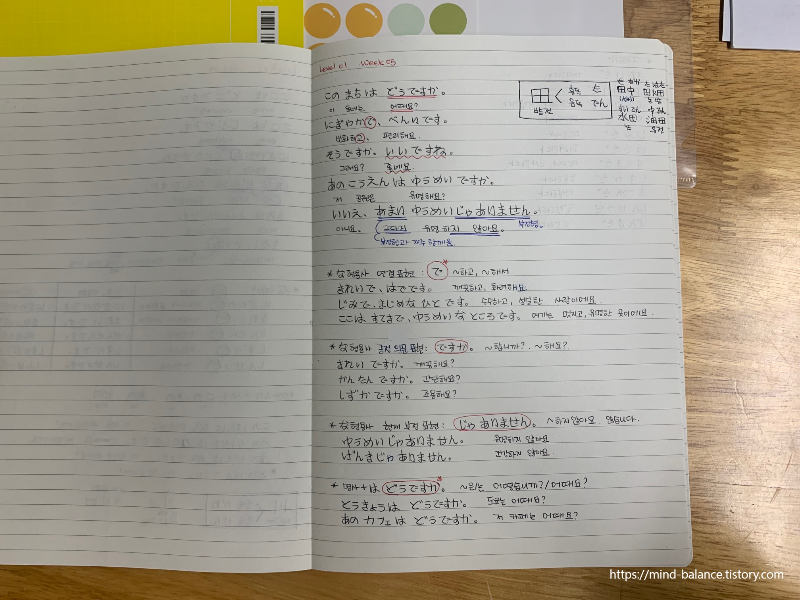 Level 01 Week 05
このまちは どうですか。
이 동네는 어때요?
にぎやかで、べんりです。
번화하고, 편리해요.
そうですか。いいですね。
그래요? 좋네요.
あのこうえんは ゆうめいですか。
저 공원은 유명해요?
いいえ、あまり ゆうめいじゃありません。
아니요. 그다지 유명하지 않아요. 부정형
부정형과 자주 함께 씀
田 훈독 た
음독 でん
밭 전
田中
水田 油田
*な형용사 연결 표현: で ~하고, ~해서
きれいで、はでです。 깨끗하고, 화려해요.
じみで、まじめな ひとです。 수수하고, 성실한 사람이에요
ここは すてきで、ゆうめいな ところです。 여기는 멋지고, 유명한 곳이에요.
*な형용사 긍정 의문 표현: ですか。 ~합니까?, ~해요?
きれいですか。 깨끗해요?
かんたんですか。 간단해요?
しずかですか。 조용해요?
*な형용사 현재 부정 표현: じゃありません。 ~하지 않아요. 않습니다.
ゆうめいじゃありません。 유명하지 않아요
じゃありません。 하지 않아요
*명사+は どうですか。 ~은/는 어떻습니까?/어때요?
とうきょうは どうですか。 도쿄는 어때요?
あの カフェは どうですか。 저 카페는 어때요?
https://mind-balance.tistory.com